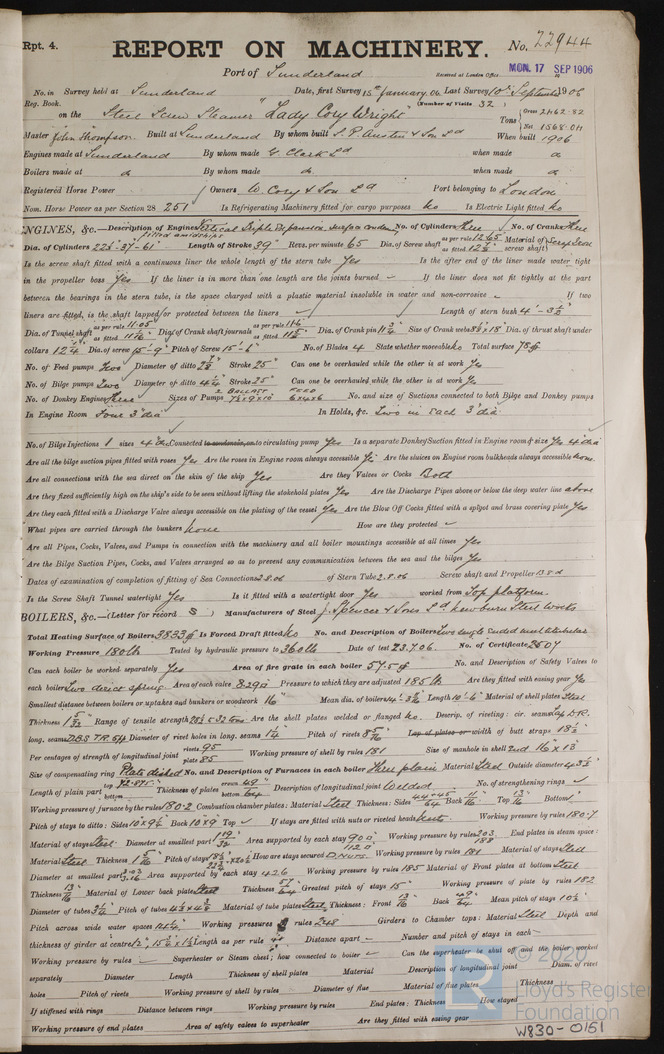 Rpt. 4.
REPORT ON MACHINERY.
No. 22944
Port of Sunderland
Received at London Office
MON. 17 SEP 1906
No. in Survey held at Sunderland Date, first Survey 15th January. 06. Last Survey 10th September 1906
Reg. Book. (Number of Visits 32)
on the Steel Screw Steamer "Lady Cory Wright" Tons Gross 2462.82 Net 1568.04
Master John Thompson. Built at Sunderland By whom built S. P. Austin & Son Ld When built 1906
Engines made at Sunderland By whom made G. Clark Ld when made do
Boilers made at do By whom made do when made do
Registered Horse Power Owners W. Cory & Son Ld Port belonging to London
Nom. Horse Power as per Section 28 251 Is Refrigerating Machinery fitted for cargo purposes No Is Electric Light fitted No
ENGINES, &c.—Description of Engines Vertical Triple Expansion, surface conden No. of Cylinders Three No. of Cranks Three
fitted amidships
Dia. of Cylinders 22½-37-61" Length of Stroke 39" Revs. per minute 65 Dia. of Screw shaft as per rule 12.65 as fitted 12⅞ Material of screw shaft
Is the screw shaft fitted with a continuous liner the whole length of the stern tube Yes Is the after end of the liner made water tight
in the propeller boss Yes If the liner is in more than one length are the joints burned – If the liner does not fit tightly at the part
between the bearings in the stern tube, is the space charged with a plastic material insoluble in water and non-corrosive – If two
liners are fitted, is the shaft lapped or protected between the liners Length of stern bush 4'-3½"
Dia. of Tunnel shaft as per rule 11.05 as fitted Dia. of Crank shaft journals as per rule 11.6 as fitted Dia. of Crank pin Size of Crank webs Dia. of thrust shaft under
collars 12¼ Dia. of screw 15'-9" Pitch of Screw 15'-6" No. of Blades 4 State whether moveable No Total surface 78
No. of Feed pumps Two Diameter of ditto Stroke 25" Can one be overhauled while the other is at work Yes
No. of Bilge pumps Two Diameter of ditto 4¼ Stroke 25" Can one be overhauled while the other is at work Yes
No. of Donkey Engines Three Sizes of Pumps 2 Ballast 7½x9x10 Feed 6x4x6 No. and size of Suctions connected to both Bilge and Donkey pumps
In Engine Room Four 3" dia In Holds, &c. Two in each 3" dia
No. of Bilge Injections 1 sizes 4" dia Connected to condenser, or to circulating pump Yes Is a separate Donkey Suction fitted in Engine room & size Yes 4" dia
Are all the bilge suction pipes fitted with roses Yes Are the roses in Engine room always accessible Yes Are the sluices on Engine room bulkheads always accessible none
Are all connections with the sea direct on the skin of the ship Yes Are they Valves or Cocks Both
Are they fixed sufficiently high on the ship's side to be seen without lifting the stokehold plates Yes Are the Discharge Pipes above or below the deep water line above
Are they each fitted with a Discharge Valve always accessible on the plating of the vessel Yes Are the Blow Off Cocks fitted with a spigot and brass covering plate Yes
What pipes are carried through the bunkers None How are they protected –
Are all Pipes, Cocks, Valves, and Pumps in connection with the machinery and all boiler mountings accessible at all times Yes
Are the Bilge Suction Pipes, Cocks, and Valves arranged so as to prevent any communication between the sea and the bilges Yes
Dates of examination of completion of fitting of Sea Connections 2.8.06 of Stern Tube 2.8.06 Screw shaft and Propeller
Is the Screw Shaft Tunnel watertight Yes Is it fitted with a watertight door Yes worked from Top platform.
BOILERS, &c.—(Letter for record S) Manufacturers of Steel J. Spencer & Sons Ld Newburn Steel Works
Total Heating Surface of Boilers 3833 Is Forced Draft fitted No No. and Description of Boilers Two single ended multitubular
Working Pressure 180lb Tested by hydraulic pressure to 360lb Date of test 23.7.06. No. of Certificate 2507
Can each boiler be worked separately Yes Area of fire grate in each boiler 57.5 No. and Description of Safety Valves to
each boiler Two direct spring Area of each valve 8.29 Pressure to which they are adjusted 185lb Are they fitted with easing gear Yes
Smallest distance between boilers or uptakes and bunkers or woodwork 16" Mean dia. of boilers Length 10'-6" Material of shell plates Steel
Thickness 1 5/32 Range of tensile strength 28½-32 tons Are the shell plates welded or flanged No Descrip. of riveting: cir. seams Lap D.R.
long. seams D.B.S. T.R. Diameter of rivet holes in long. seams 1¼ Pitch of rivets 8 5/16 Lap of plates or width of butt straps 18½"
Per centages of strength of longitudinal joint rivets 95 plate 85 Working pressure of shell by rules 181 Size of manhole in shell 2nd 16x13
Size of compensating ring Plate dished No. and Description of Furnaces in each boiler Three plain Material Steel Outside diameter 43½
Length of plain part top bottom Thickness of plates crown bottom Description of longitudinal joint Welded No. of strengthening rings –
Working pressure of furnace by the rules 180.2 Combustion chamber plates: Material Steel Thickness: Sides Back Top Bottom
Pitch of stays to ditto: Sides 10x9½ Back 10x9 Top – If stays are fitted with nuts or riveted heads Nuts. Working pressure by rules 180.7
Material of stays Steel Diameter at smallest part Area supported by each stay 90 Working pressure by rules 203 188 End plates in steam space:
Material Steel Thickness Pitch of stays How are stays secured D. Nuts Working pressure by rules 181 Material of stays Steel
Diameter at smallest part Area supported by each stay 426 Working pressure by rules 185 Material of Front plates at bottom Steel
Thickness 13/16 Material of Lower back plate Steel Thickness 57/64 Greatest pitch of stays 15" Working pressure of plate by rules 182
Diameter of tubes 3¼ Pitch of tubes Material of tube plates Steel Thickness: Front Back Mean pitch of stays
Pitch across wide water spaces Working pressures by rules 248 Girders to Chamber tops: Material Steel Depth and
thickness of girder at centre Length as per rule Distance apart – Number and pitch of stays in each –
Working pressure by rules – Superheater or Steam chest; how connected to boiler – Can the superheater be shut off and the boiler worked
separately Diameter Length Thickness of shell plates Material Description of longitudinal joint Diam. of rivet
holes Pitch of rivets Working pressure of shell by rules Diameter of flue Material of flue plates Thickness
If stiffened with rings Distance between rings Working pressure by rules End plates: Thickness How stayed
Working pressure of end plates Area of safety valves to superheater Are they fitted with easing gear
© 2020
LR
Lloyd's Register
Foundation
W830-0151